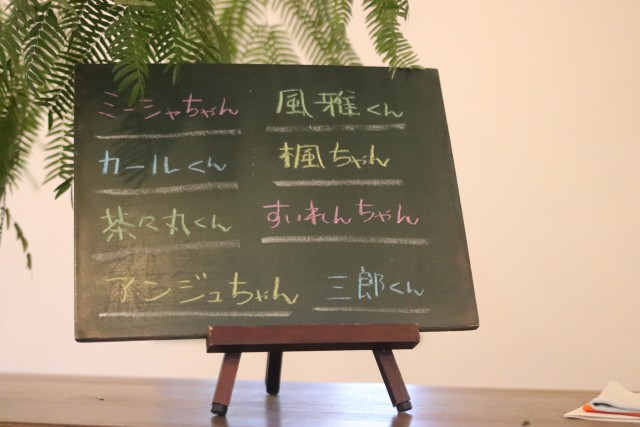 ミーシャちゃん
風雅くん
カールくん
楓ちゃん
茶々丸くん
すいれんちゃん
アンジュちゃん
三郎くん